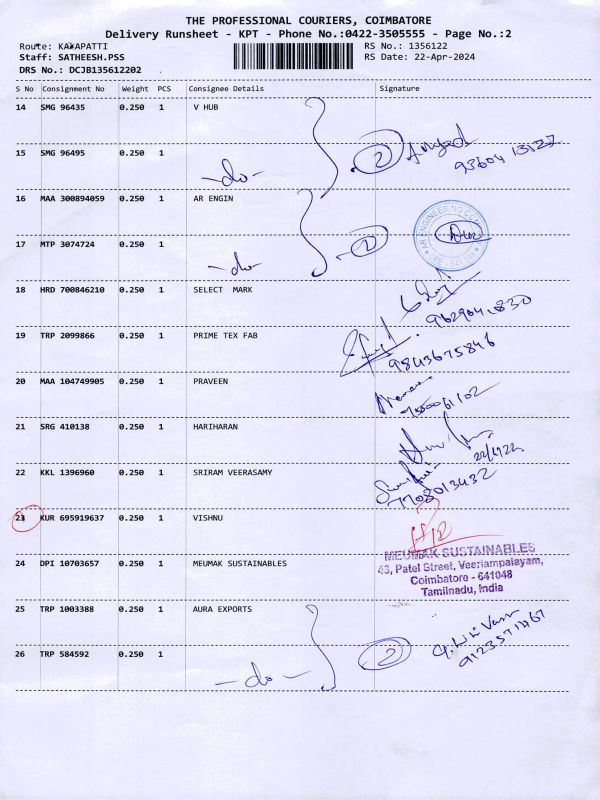 THE PROFESSIONAL COURIERS, COIMBATORE
Delivery Runsheet - KPT - Phone No.:0422-3505555 - Page No.:2
Route: KALAPATTI RS No.: 1356122
Staff: SATHEESH.PSS RS Date: 22-Apr-2024
DRS No.: DCJB135612202
S No Consignment No Weight PCS Consignee Details Signature
14 SMG 96435 0.250 1 V HUB
15 SMG 96495 0.250 1 -do- 2
16 MAA 300894059 0.250 1 AR ENGIN
17 MTP 3074724 0.250 1 -do- 2
18 HRD 700846210 0.250 1 SELECT MARK
19 TRP 2099866 0.250 1 PRIME TEX FAB
9843675846
20 MAA 104749905 0.250 1 PRAVEEN
21 SRG 410138 0.250 1 HARIHARAN
22 KKL 1396960 0.250 1 SRIRAM VEERASAMY
7708013432
23 KUR 695919637 0.250 1 VISHNU
24 DPI 10703657 0.250 1 MEUMAK SUSTAINABLES
MEUMAK SUSTAINABLES
43, Patel Street, Veeriampalayam,
Coimbatore - 641048
Tamilnadu, India
25 TRP 1003388 0.250 1 AURA EXPORTS
26 TRP 584592 0.250 1 -do- 2